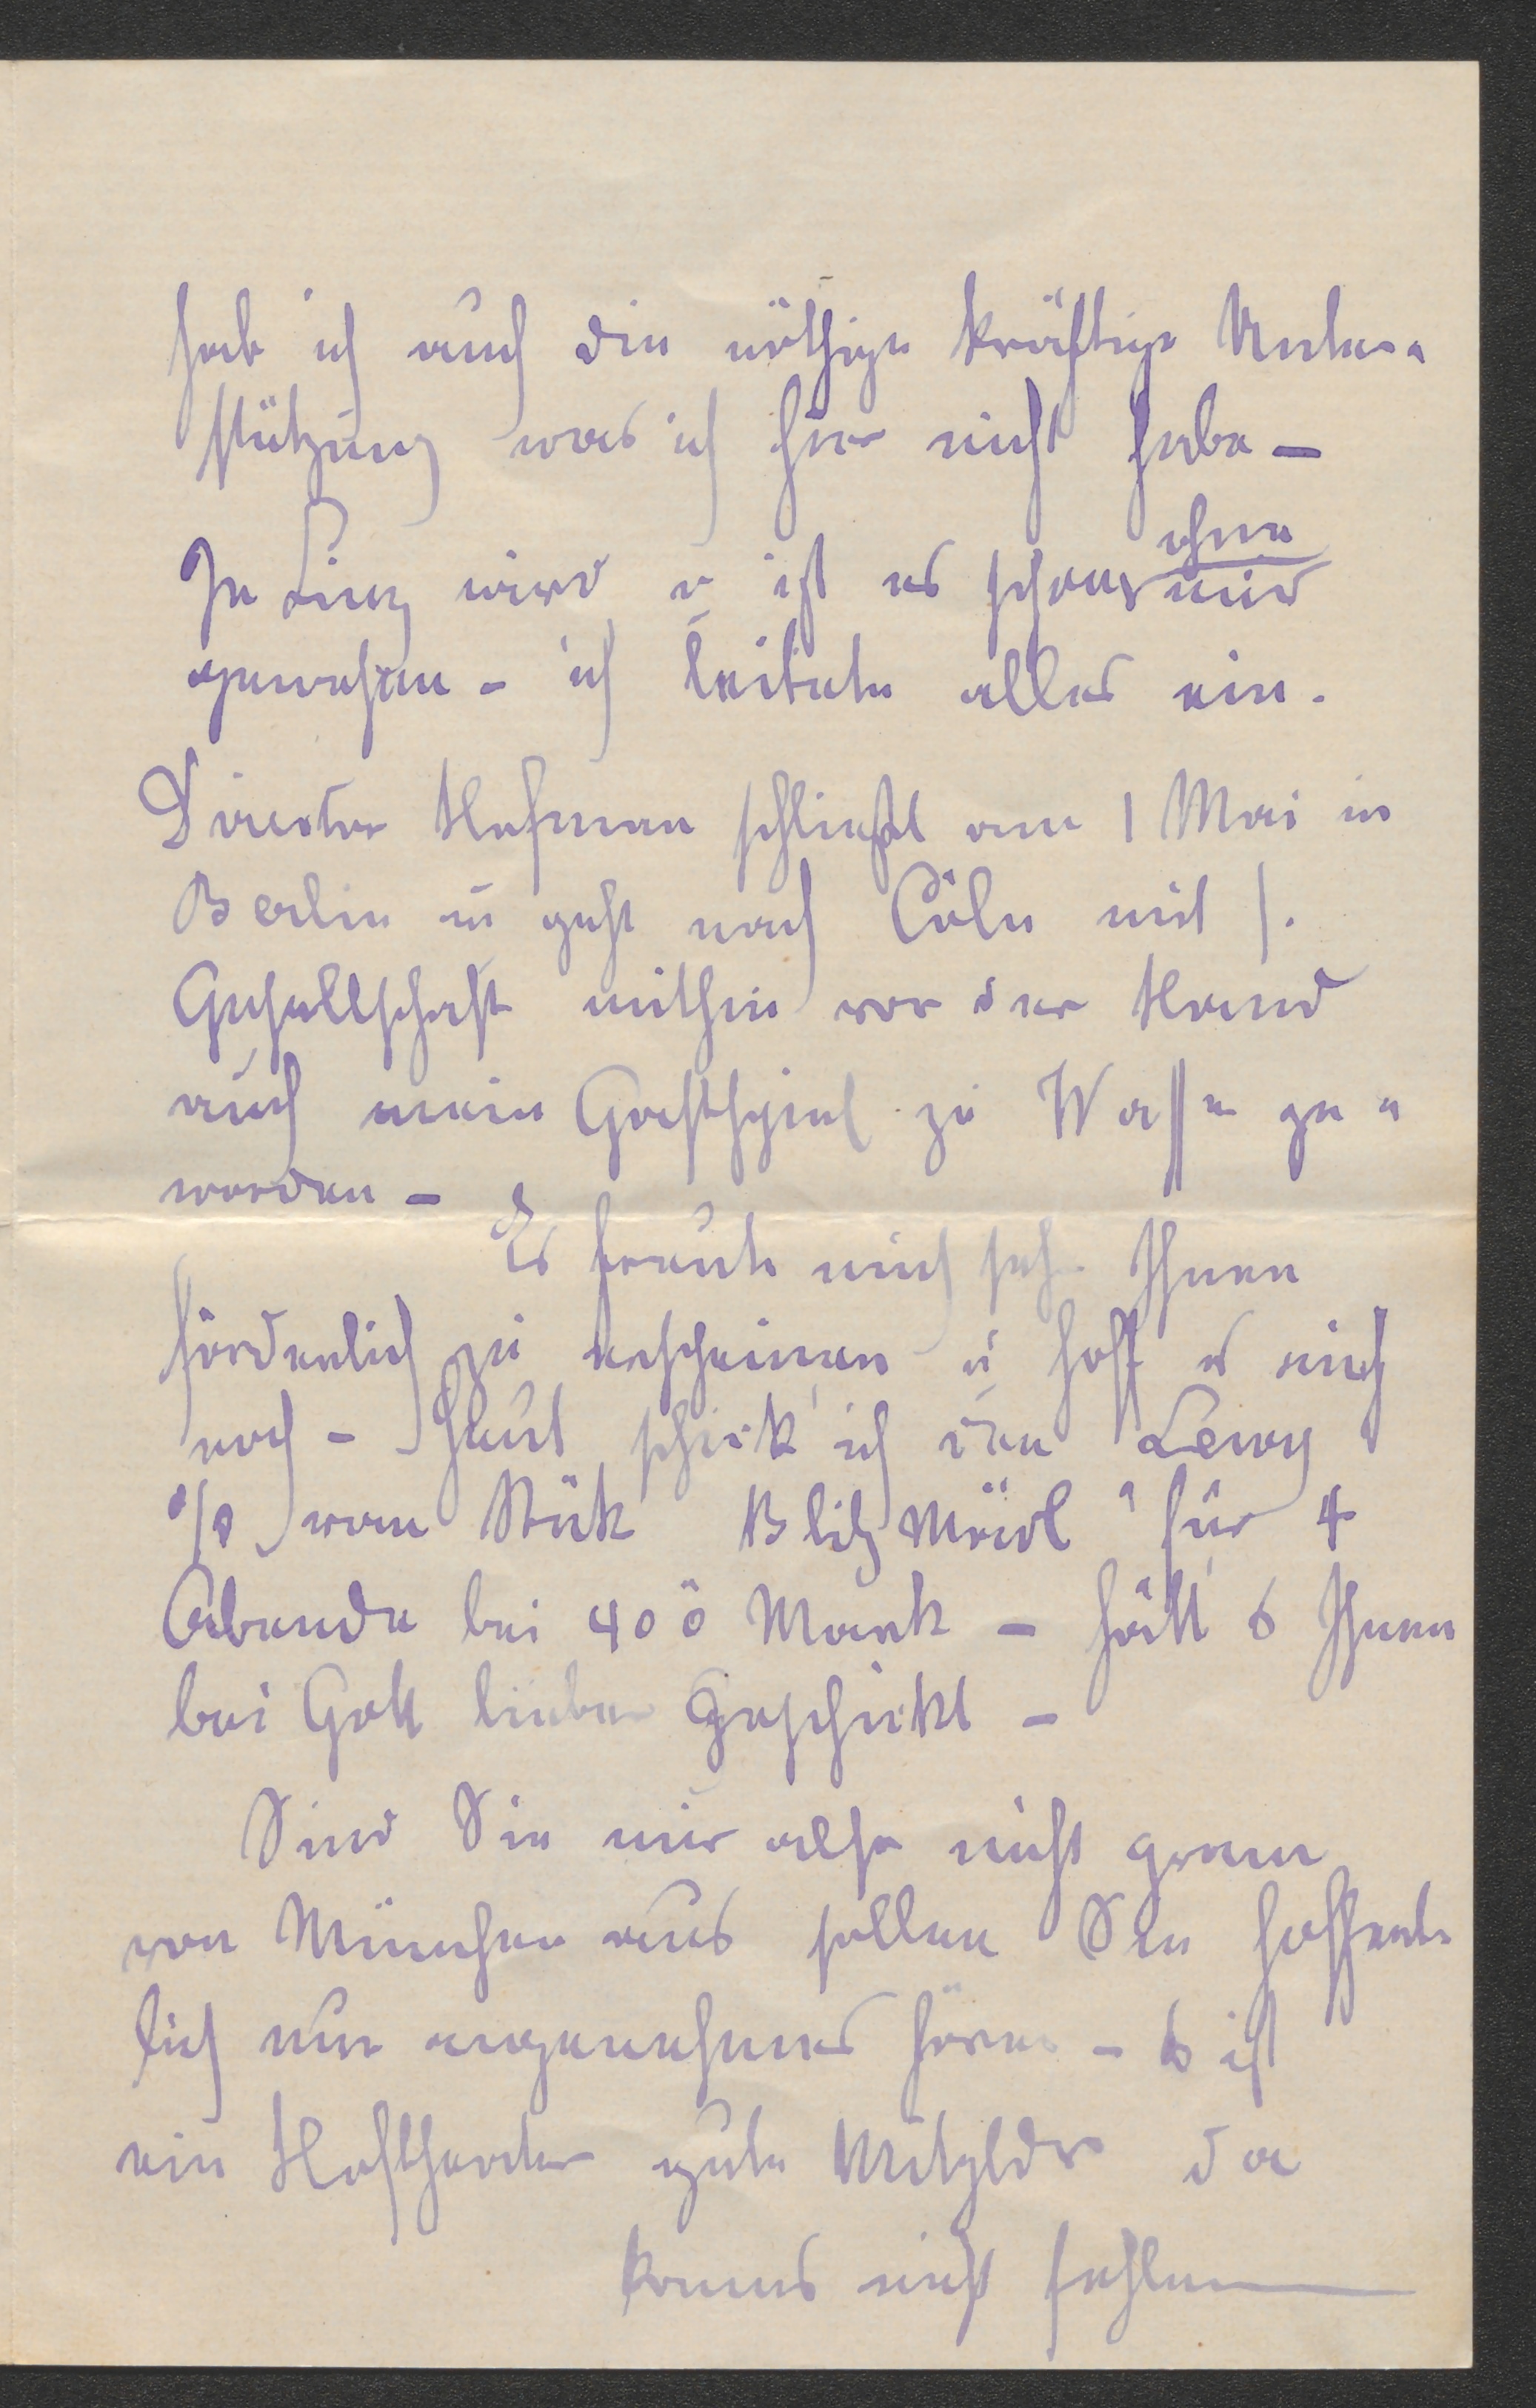 hab ich auch die nöthige kräftige Unter-
stützung was ich hier nicht habe –
In Linz wird u ist es schon ohne mir
gewesen – ich leitete alles ein.
Director Hofman schließt am 1 Mai in
Berlin u geht nach Cöln mit s.
Gesellschaft mithin vor der Hand
auch mein Gastspiel zu Wasser ge-
worden –
Es freute mich sehr Ihnen
förderlich zu erscheinen u hoff es auch
noch – Heut schick ich den Lewy
% vom Stück Blitzmädl" für 4
Abende bei 400 Mark – hätt s Ihnen
bei Gott lieber geschickt –
Sind Sie mir also nicht gram
von München aus sollen Sie hoffent-
lich nur angenehmes hören – s ist
ein Hoftheater gute Mitglder da
kanns nicht fehlen